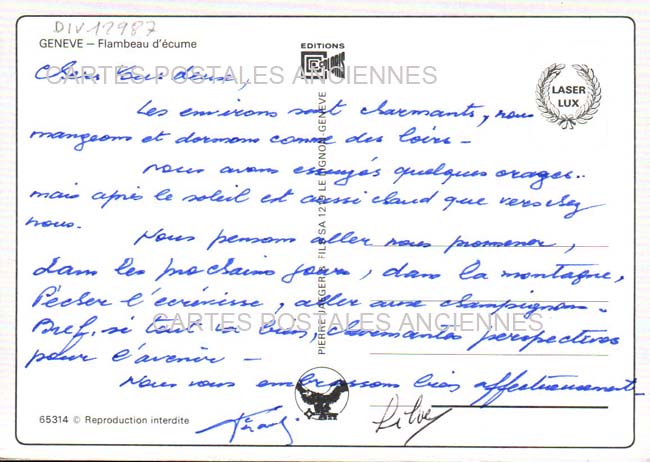 DIV12987
GENEVE – Flambeau d'écume
EDITIONS
CARTES POSTALES ANCIENNES
LASER
LUX
Chers tous deux,
Les environs sont charmants, nous
mangeons et dormons comme des loirs –
Nous avons essuyés quelques orages..
mais après le soleil est aussi chaud que vers chez
nous.
Nous pensons aller nous promener,
dans les prochains jours, dans la montagne,
Pêcher l'écrevisse, aller aux champignons –
Bref, si tout va bien, charmantes perspectives
pour l'avenir –
CARTES POSTALES ANCIENNES
Nous vous embrassons bien affectueusement –
PIERRE JAEGER & FILS SA 1219 LE LIGNON-GENEVE
65314 © Reproduction interdite